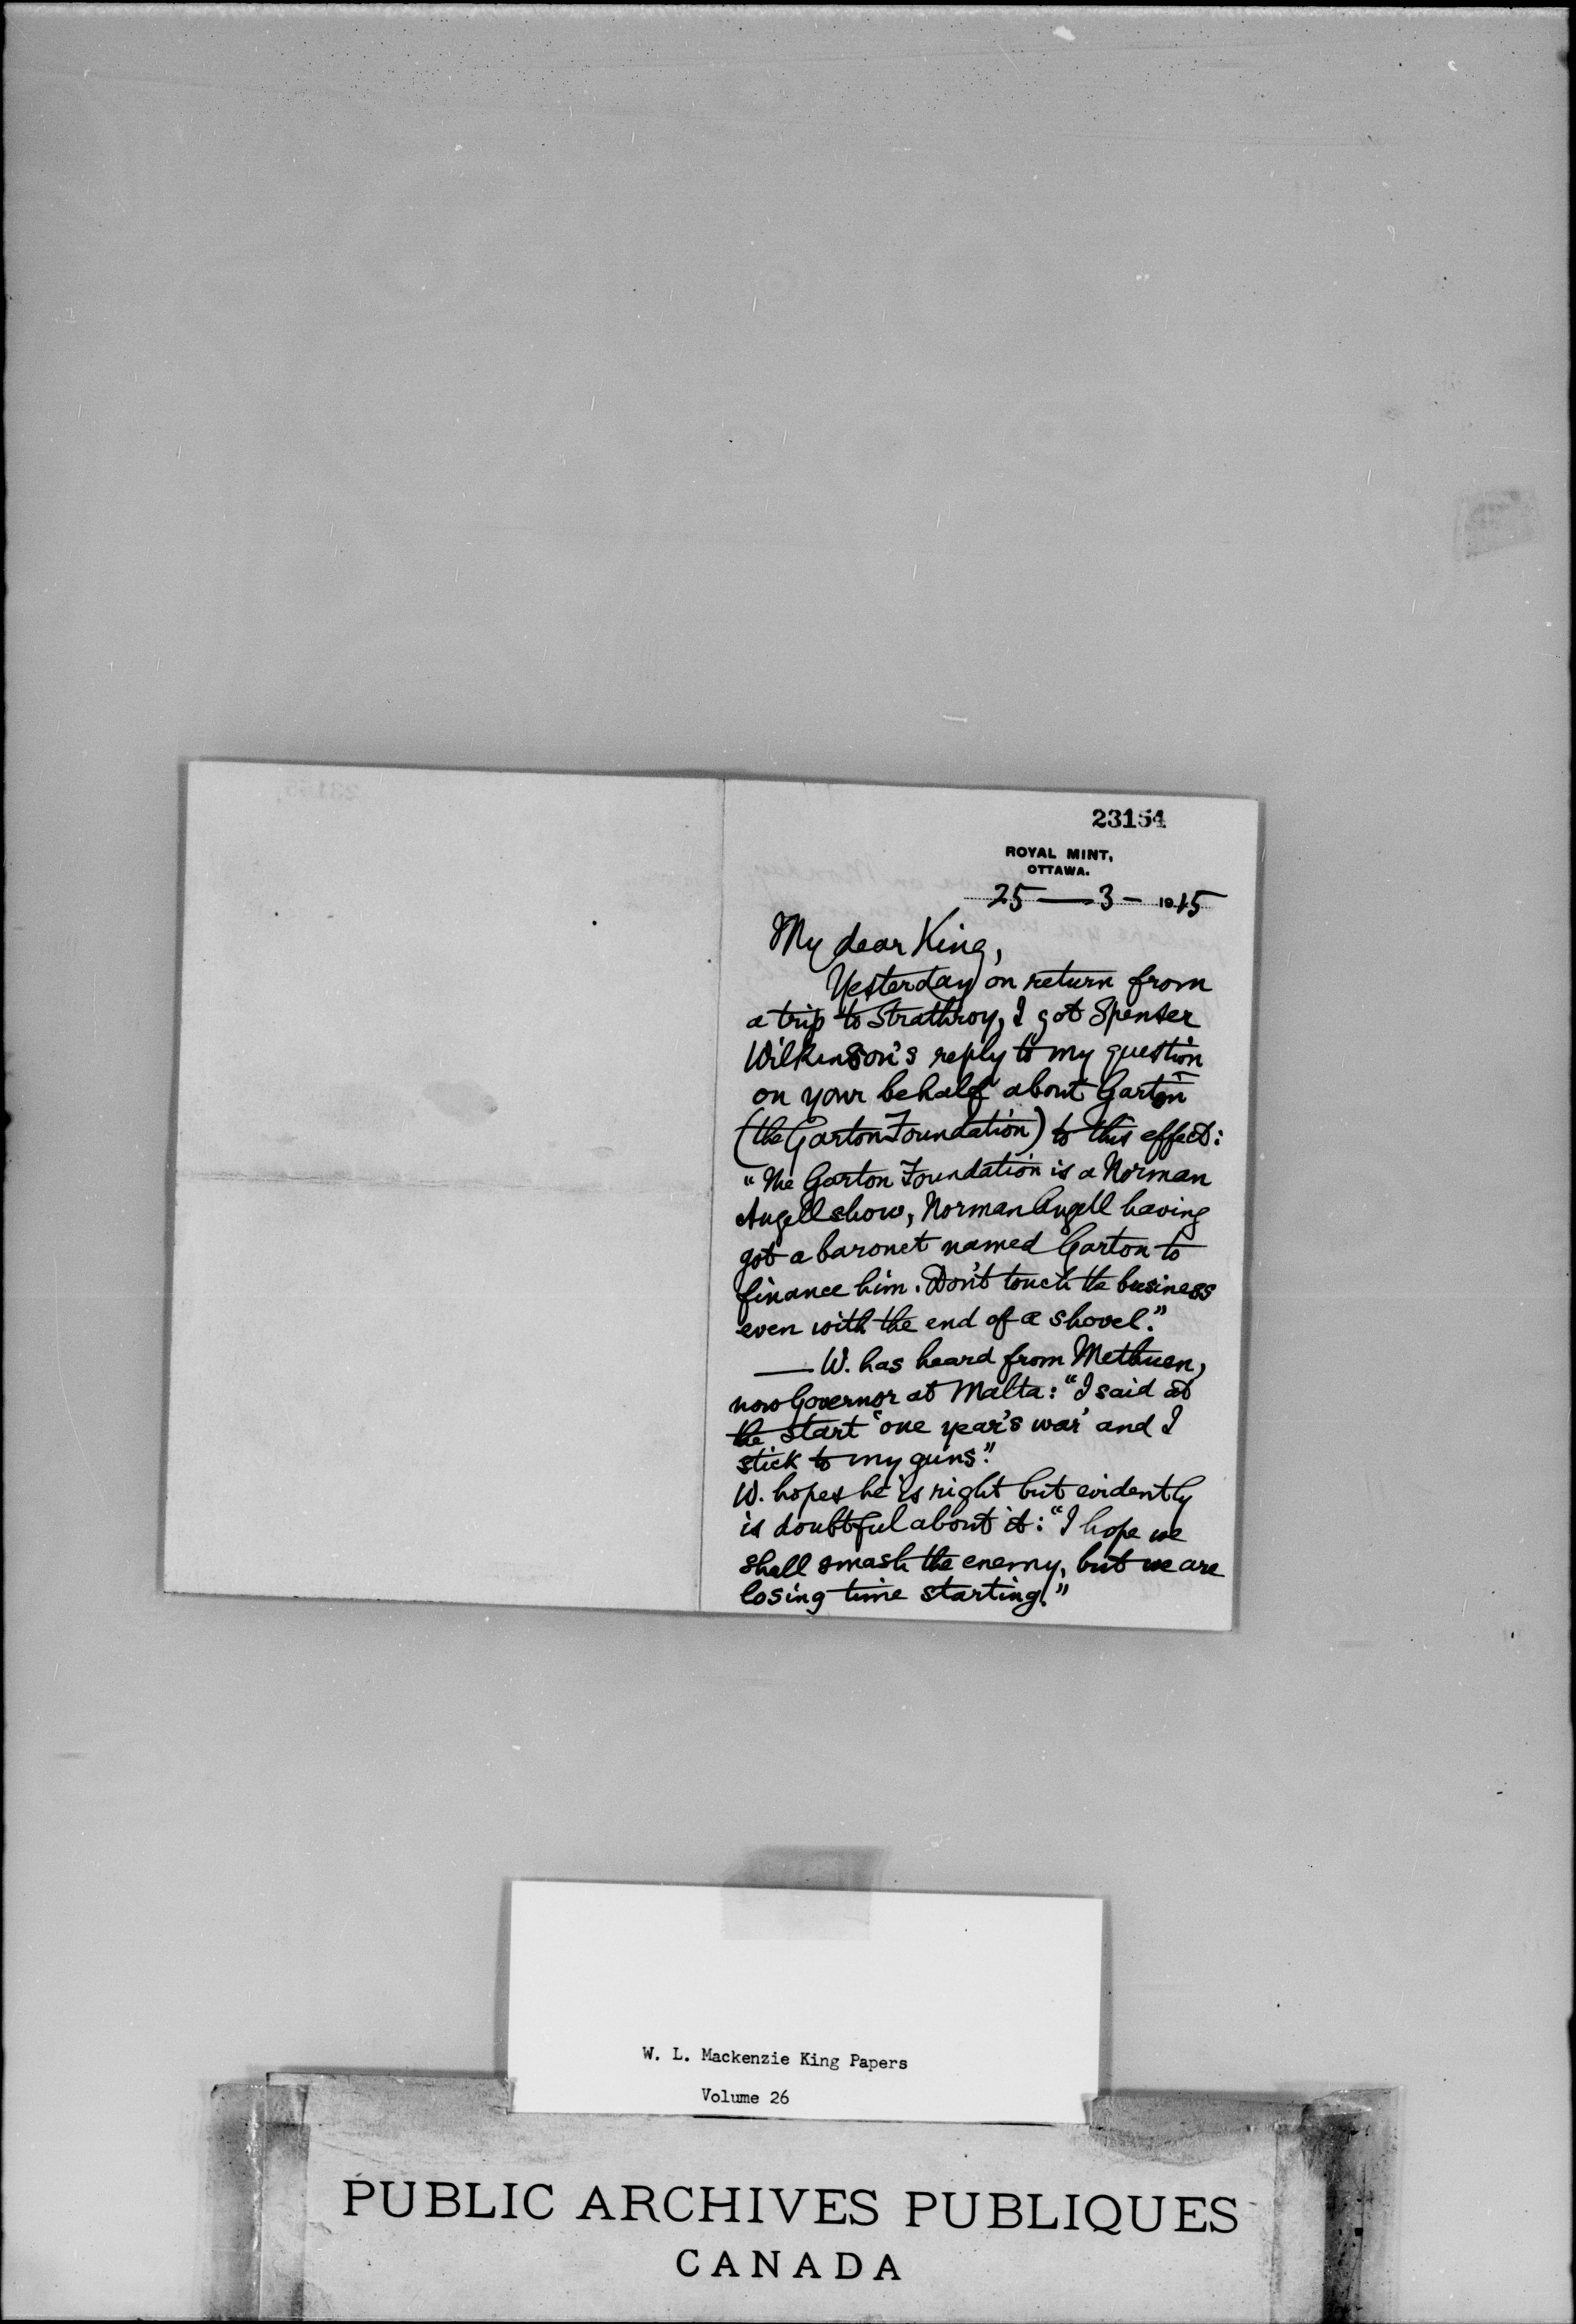 23154
ROYAL MINT,
OTTAWA.
25 — 3 – 1915
My dear King,
Yesterday on return from
a trip to Strathroy, I got Spenser
Wilkinson's reply to my question
on your behalf about Garton
(the Garton Foundation) to this effect:
"The Garton Foundation is a Norman
Angell show, Norman Angell having
got a baronet named Garton to
finance him. Don't touch the business
even with the end of a shovel."
— W. has heard from Methuen,
now Governor at Malta: "I said at
the start 'one year's war' and I
stick to my guns."
W. hopes he is right but evidently
is doubtful about it: "I hope we
shall smash the enemy, but we are
losing time starting."
W. L. Mackenzie King Papers
Volume 26
PUBLIC ARCHIVES PUBLIQUES
CANADA